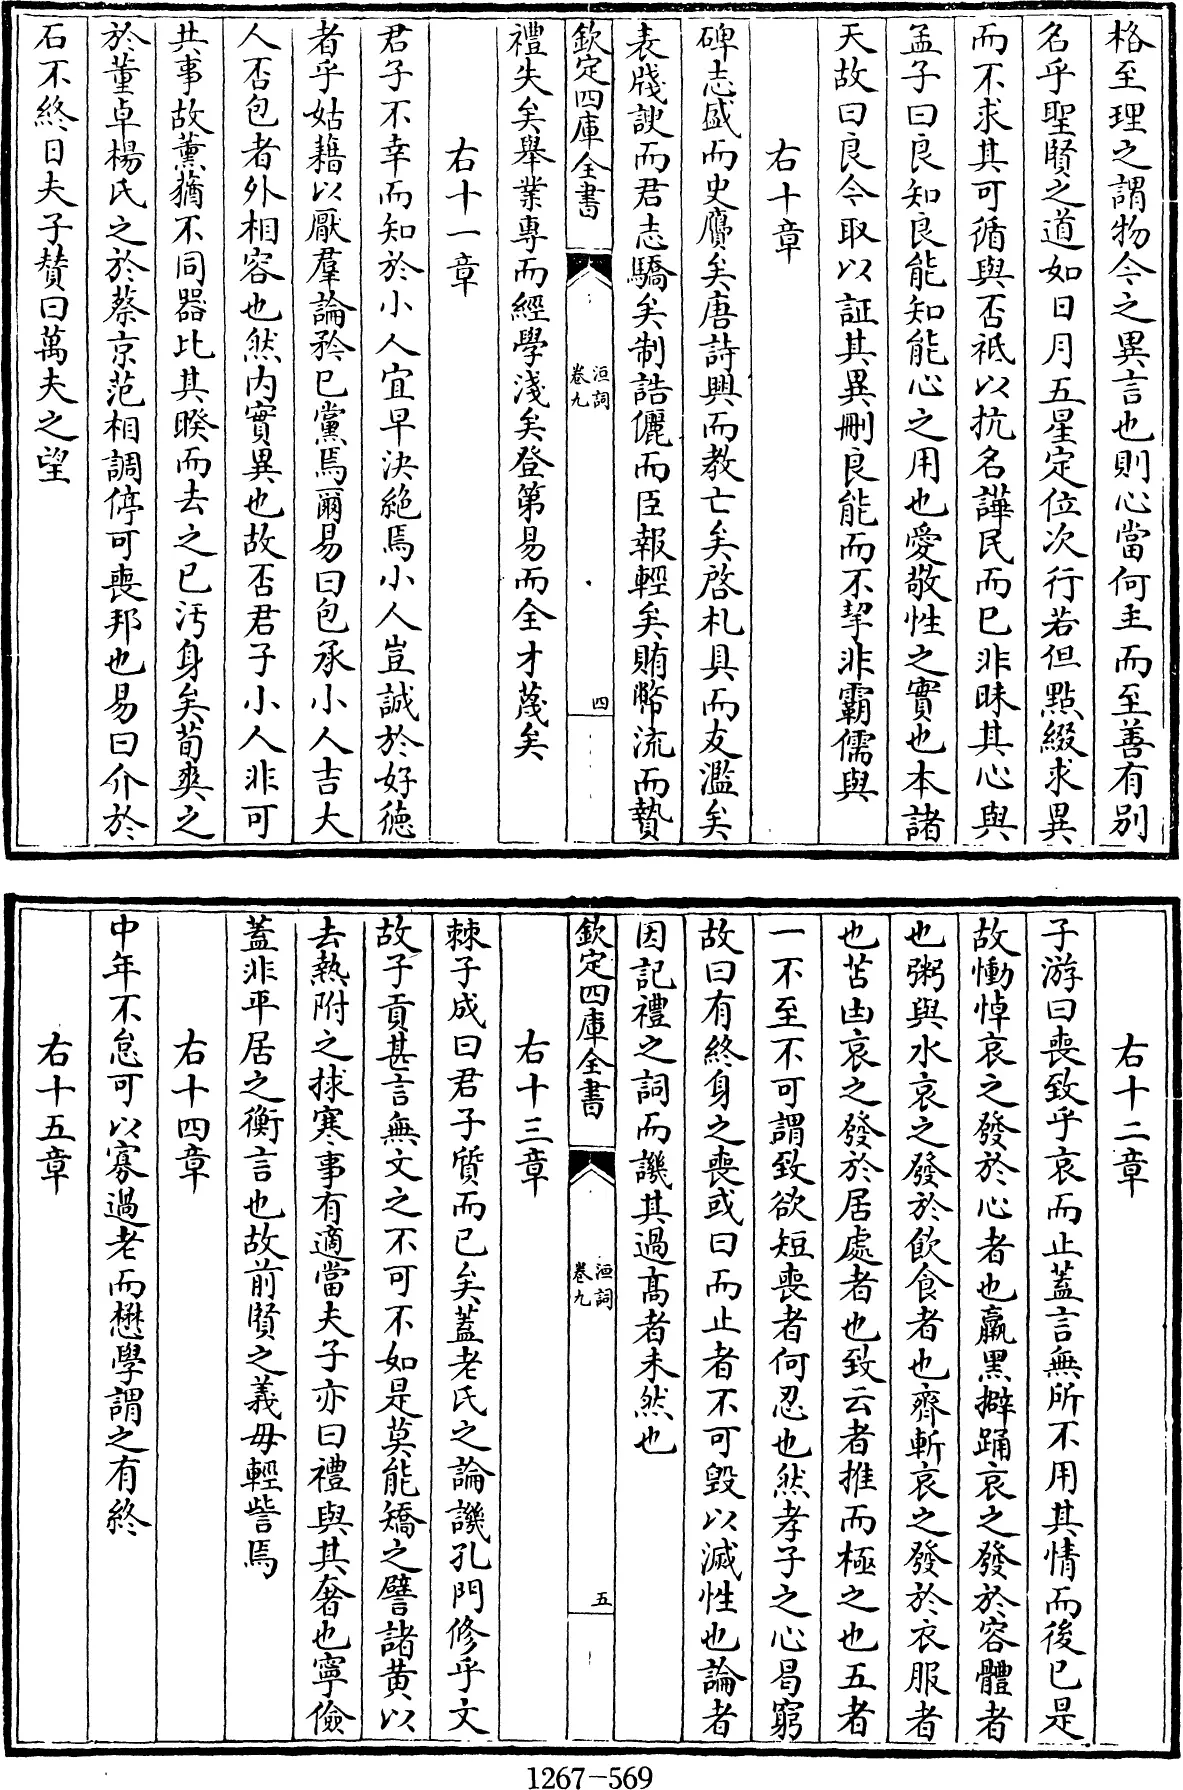 格至理之謂物今之異言也則心當何主而至善有別
名乎聖賢之道如日月五星定位次行若但點綴求異
而不求其可循與否祗以抗名譁民而已非昧其心與
孟子曰良知良能知能心之用也愛敬性之實也本諸
天故曰良今取以証其異刪良能而不挈非霸儒與
右十章
碑志盛而史贗矣唐詩興而教亡矣啓札具而友濫矣
表牋諛而君志驕矣制誥儷而臣報輕矣賄幣流而贄
欽定四庫全書
洹詞
卷九
四
禮失矣舉業專而經學淺矣登第易而全才蔑矣
右十一章
君子不幸而知於小人宜早決絶焉小人豈誠於好徳
者乎姑藉以厭羣論矜已黨焉爾易曰包承小人吉大
人否包者外相容也然内實異也故否君子小人非可
共事故薰蕕不同器比其暌而去之已汚身矣荀爽之
於董卓楊氏之於蔡京范相調停可喪邦也易曰介於
石不終日夫子賛曰萬夫之望
右十二章
子游曰喪致乎哀而止蓋言無所不用其情而後已是
故慟悼哀之發於心者也羸黑擗踊哀之發於容體者
也粥與水哀之發於飲食者也齊斬哀之發於衣服者
也苫凷哀之發於居處者也致云者推而極之也五者
一不至不可謂致欲短喪者何忍也然孝子之心曷窮
故曰有終身之喪或曰而止者不可毁以滅性也論者
因記禮之詞而譏其過髙者未然也
欽定四庫全書
洹詞
卷九
五
右十三章
棘子成曰君子質而已矣蓋老氏之論譏孔門修乎文
故子貢甚言無文之不可不如是莫能矯之譬諸黄以
去熱附之捄寒事有適當夫子亦曰禮與其奢也寧儉
蓋非平居之衡言也故前賢之義毋輕訾焉
右十四章
中年不怠可以寡過老而懋學謂之有終
右十五章
1267-569